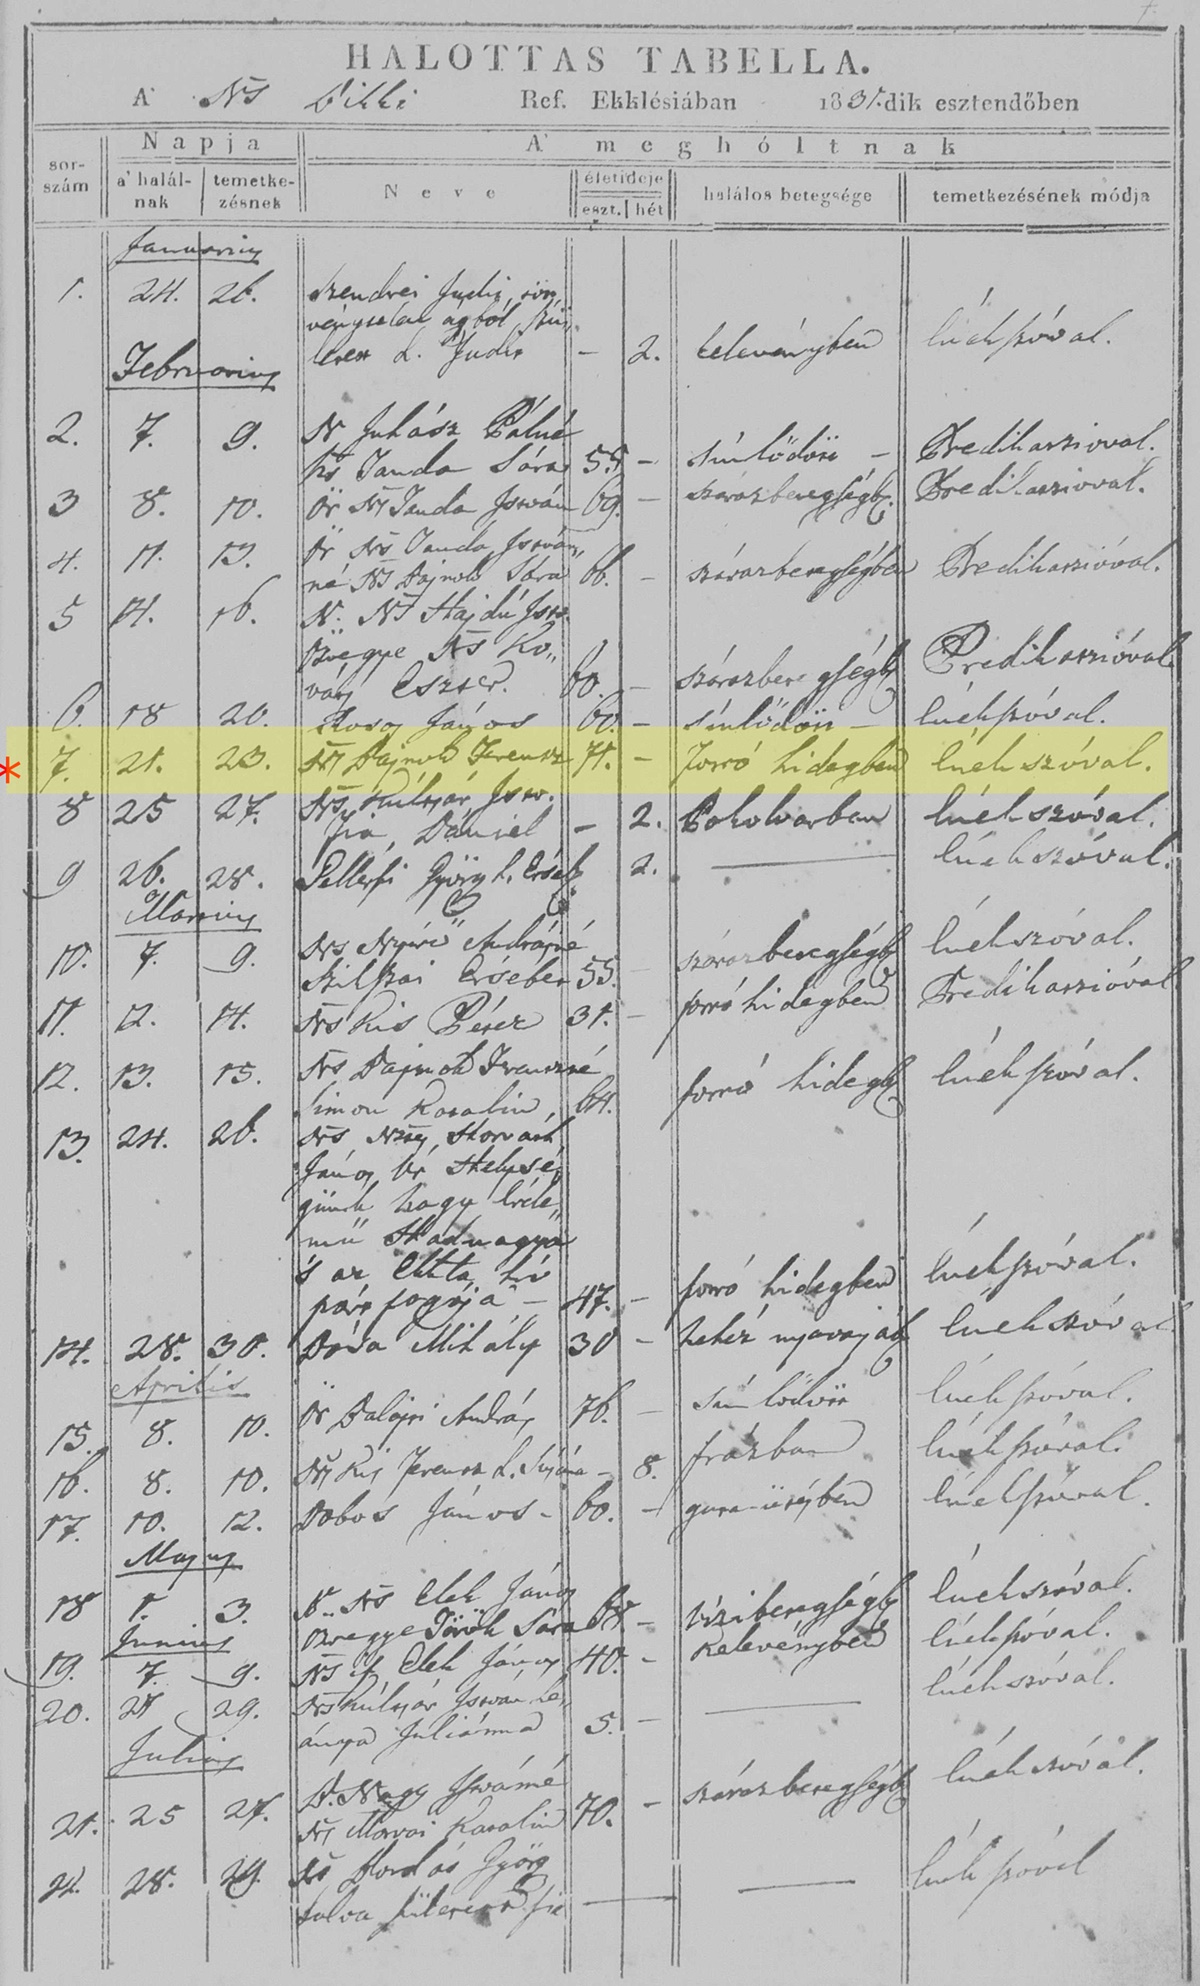 HALOTTAS TABELLA.
A' Ns Ref. Ekklésiában 1835.dik esztendőben
sor-szám
Napja
a' halál-nak
temetke-zésnek
A' meghóltnak
Neve
életideje
eszt. hét
halálos betegsége
temetkezésének módja
Januarius
1. 24. 26. Szendrei
ágból
Judit – 2. kelevényben énekszóval.
Februarius
2. 7. 9. N Juhász Pálné
Tanda Sára 55 – sinlődős – Predikatzioval.
3 8. 10. Ör Ns Tanda István 69. – szárazbetegségb. Predikatzioval.
4. 11. 13. Ör Ns Tanda István
né Ns Bajnok Sára 66. – szárazbetegségben Predikatzióval.
5 14. 16. N. Ns Hajdú Istv.
özvegye Ns Ko
vátj Eszter. 60. – szárazbetegségb Predikatzióval
6. 18 20. János 60. – sinlődős – énekszóval.
7. 21. 23. Ns Bajnok Ferentz 71. – Forró hidegben énekszóval.
8 25 27. Ns Kulcsár Istv.
fia Dániel – 2. Pokolvarban énekszóval.
9 26. 28. György l. Erséb 2. énekszóval.
Martius
10. 7. 9. Ns Nyíri Andrásné
Szilvai Ersébet 55. szárazbetegségb énekszóval.
11. 12. 14. Ns Kis Péter 31. – forró hidegben Predikatzióval
12. 13. 15. Ns Bajnok Ferentzné
Simon Katalin, 64. forró hidegb énekszóval.
13. 24. 26. Ns Horváth
János Úr Helysé
günk nagy érde
mű Hadnagya
's az
pár fogója – 47. – forró hidegben énekszóval.
14. 28. 30. Dósa Mihály 30 – nehéz nyavajáb énekszóval
Aprilis
15. 8. 10. Ör Balajti András 76. – sinlődős énekszóval.
16. 8. 10. Ns Kis Ferentz l. – 8. frászban énekszóval.
17. 10. 12. Dobos János – 60. – énekszóval.
Majus
18 1. 3. Ö. Ns Elek János
özvegye Török Sára 68. – vízibetegségb énekszóval.
Junius
19. 7. 9. Ns if Elek János 40. – kelevényben énekszóval.
20. 27 29. Ns Kulcsár István le
ánya Juliánna 5. – énekszóval.
Julius
21. 25 27. Ö. Nagy Istvánné
Ns Morvai Katalin 70. – szárazbetegségb énekszóval.
22. 28. 29. Ns Bordás György
halva született fia énekszóval